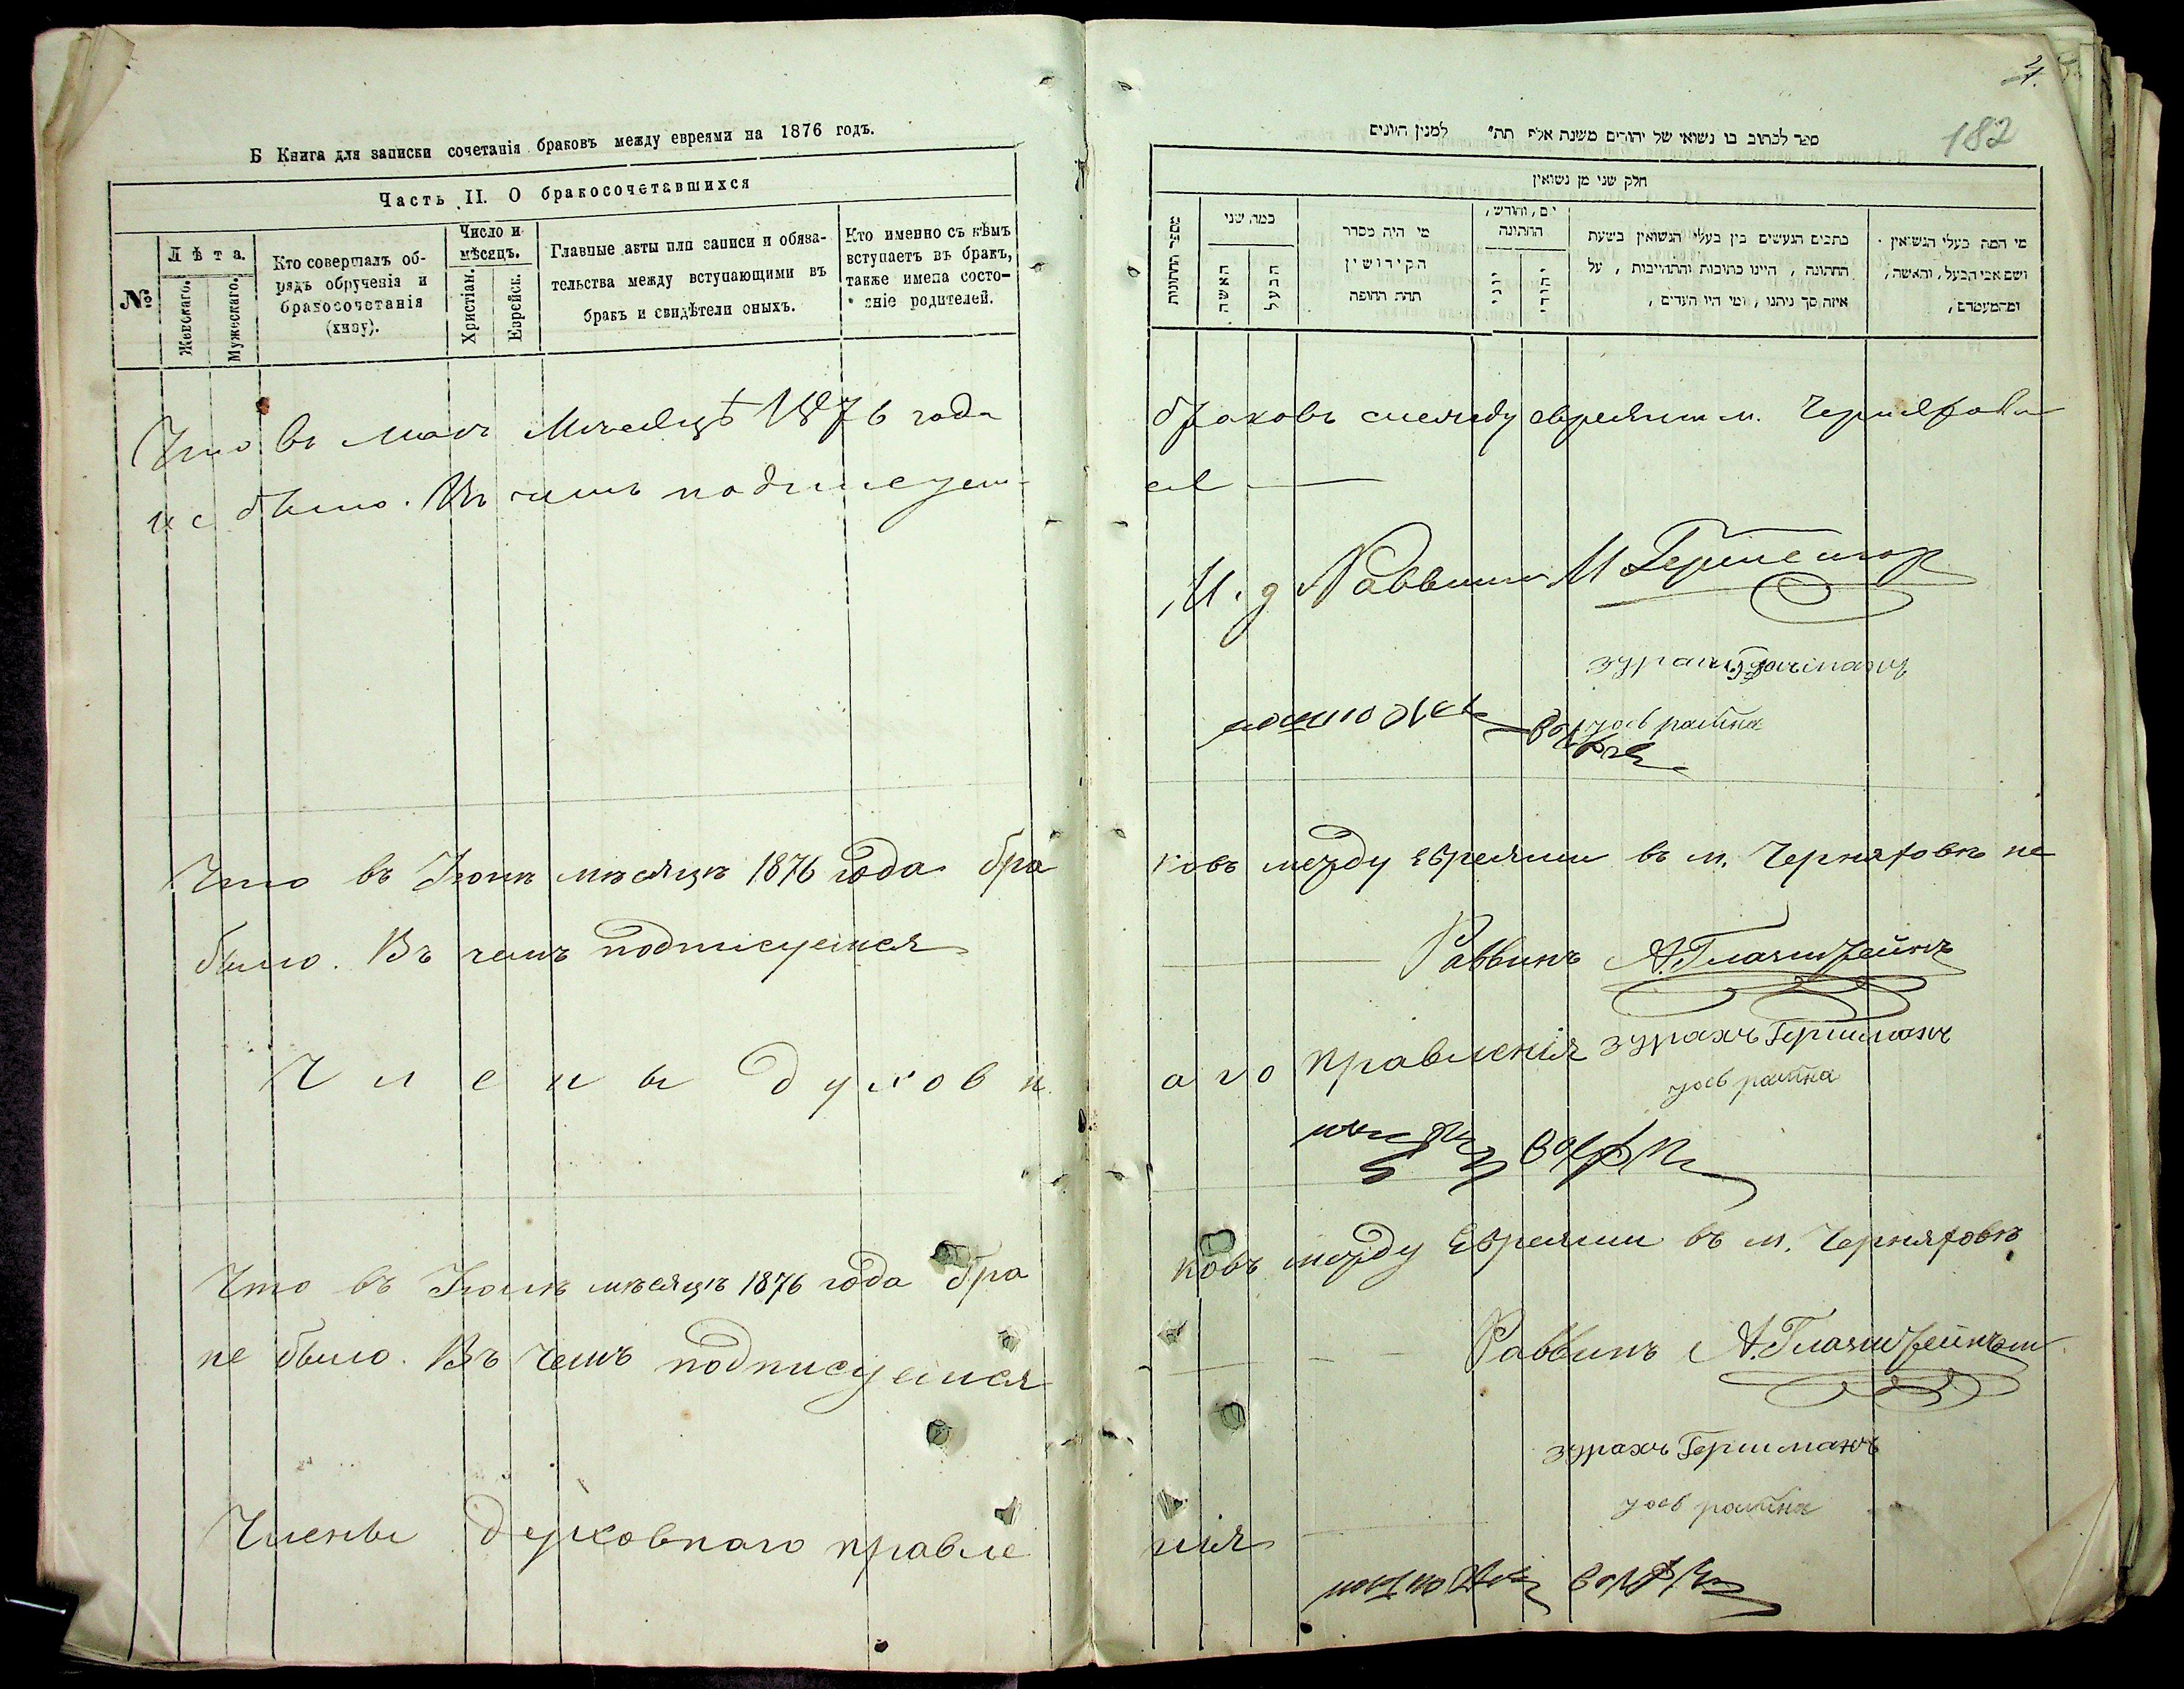 Б Книга для записки сочетанія браковъ между евреями на 1876 годъ.
Часть II. О бракосочетавшихся
№
Лѣта.
Женскаго.
Мужескаго.
Кто совершалъ об-
рядъ обрученія и
бракосочетанія
(хипу).
Число и
мѣсяцъ.
Христіан.
Еврейск.
Главные акты или записи и обяза-
тельства между вступающими въ
бракъ и свидѣтели оныхъ.
Кто именно съ кѣмъ
вступаетъ въ бракъ,
также имена состо-
яніе родителей.
Что въ маѣ Мѣсяцѣ 1876 года
не было. Въ чемъ подписуем-
Что въ Іюнѣ мѣсяцѣ 1876 года бра
было. Въ чемъ подписуемся
Члены духовн
Что въ Іюлѣ мѣсяцѣ 1876 года бра
не было. Въ чемъ подписуемся
Члены духовнаго правле
4.
182
ספר לכתוב בו נשואי של יהודים משנת אלפ תת" למנין היונים
חלק שני מן נשואין
מספר החתונות
כמה שני
האשה
הבעל
מי היה מסדר
הקידושין
תחת החופה
יום, וחודש,
החתונה
יוני
יהודי
כתבים הנעשים בין בעלי הנשואין בשעת
החתונה, היינו כתובות והתחייבות, על
איזה סך ניתנו, ומי היו העדים,
מי המה בעלי הנשואין
ושם אבי הבעל, והאשה,
ומהמעטרם,
браковъ между евреями м. Черняхова
ся
И. д Раввина М
зурахъ Гершманъ
іось
ковъ между евреями въ м. Черняховѣ не
Раввинъ А.
аго правленія зурахъ Гершманъ
іось
ковъ между Евреями въ м. Черняховѣ
Раввинъ А.
зурахъ Гершманъ
іось
нія